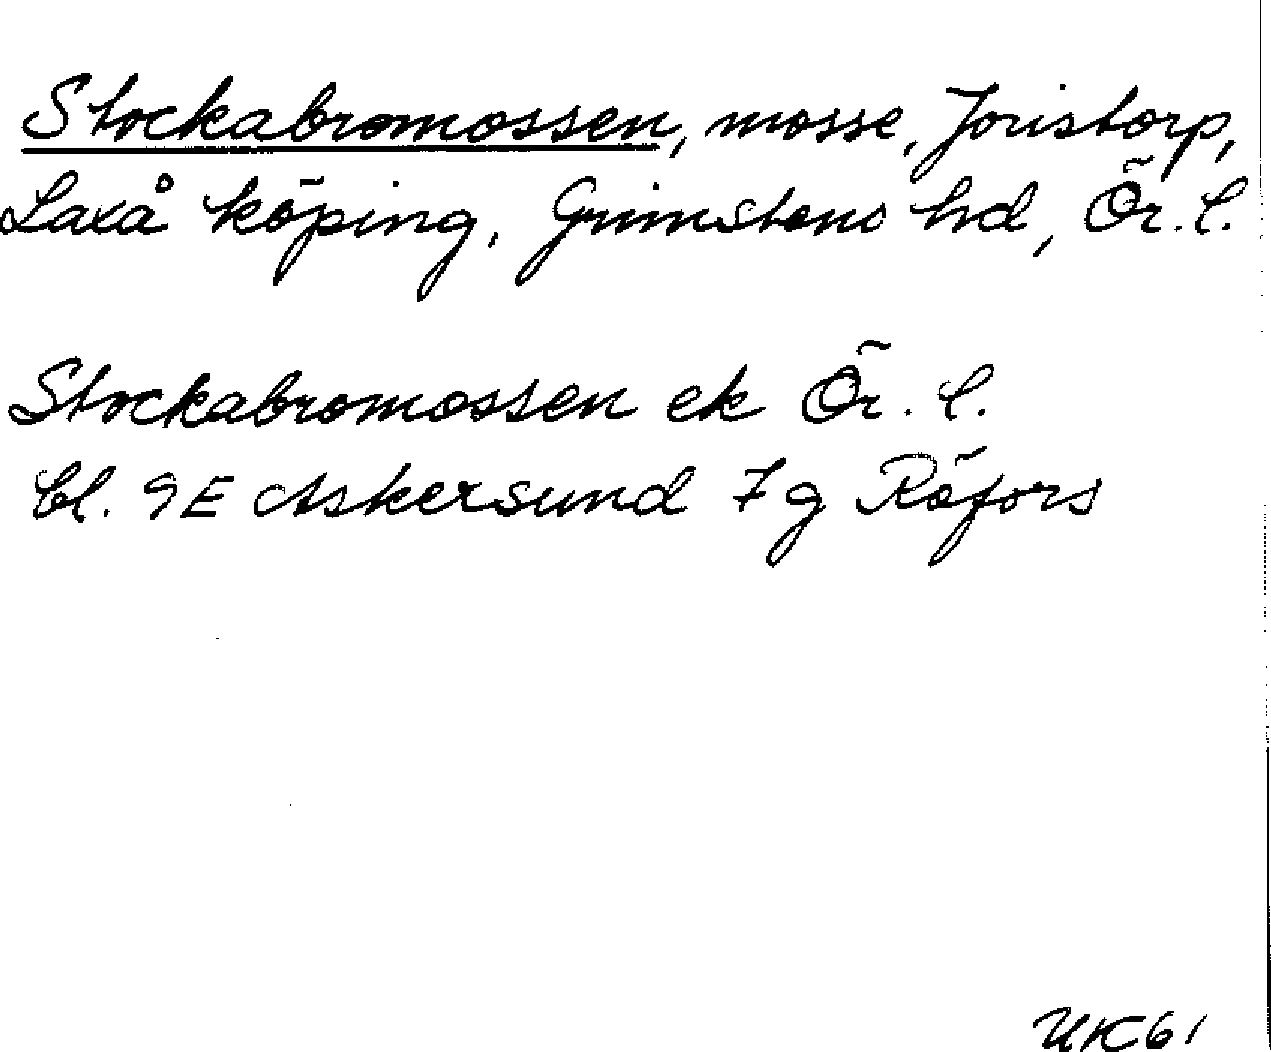 Stockabromossen, mosse, Joristorp,
Laxå köping, Grimstens hd, Ör. l.
Stockabromossen ek Ör. l.
bl. 9E Askersund 7 g Röfors
UK61